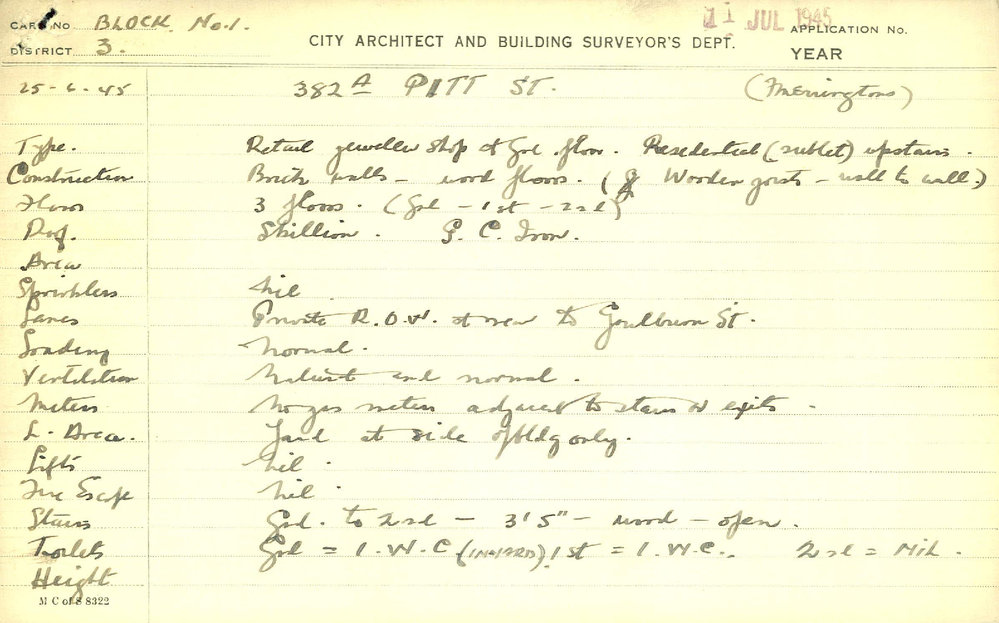 CARD No. BLOCK No.1.
11 JUL 1945
APPLICATION No.
DISTRICT 3.
CITY ARCHITECT AND BUILDING SURVEYOR'S DEPT.
YEAR
25-6-45 382A PITT ST. (Merringtons)
Type. Retail jeweller shop at Grd floor. Residential (sublet) upstairs.
Construction Brick walls - wood floors. (Wooden joists - wall to wall.)
Floors 3 floors. (Grd - 1st - 2nd)
Roof. Skillion. G. C. Iron.
Area
Sprinklers Nil
Lanes Private R.O.W. at rear to Goulburn St.
Loading Normal.
Ventilation Natural and normal.
Meters No gas meters adjacent to stairs or exits.
L. Area. Yard at side of bldg only.
Lifts Nil.
Fire Escape Nil.
Stairs Grd. to 2nd - 3'5" - wood - open.
Toilets Grd = 1. W.C (IN YARD) 1st = 1. W.C. 2nd = Nil.
Height
M C of S 8322